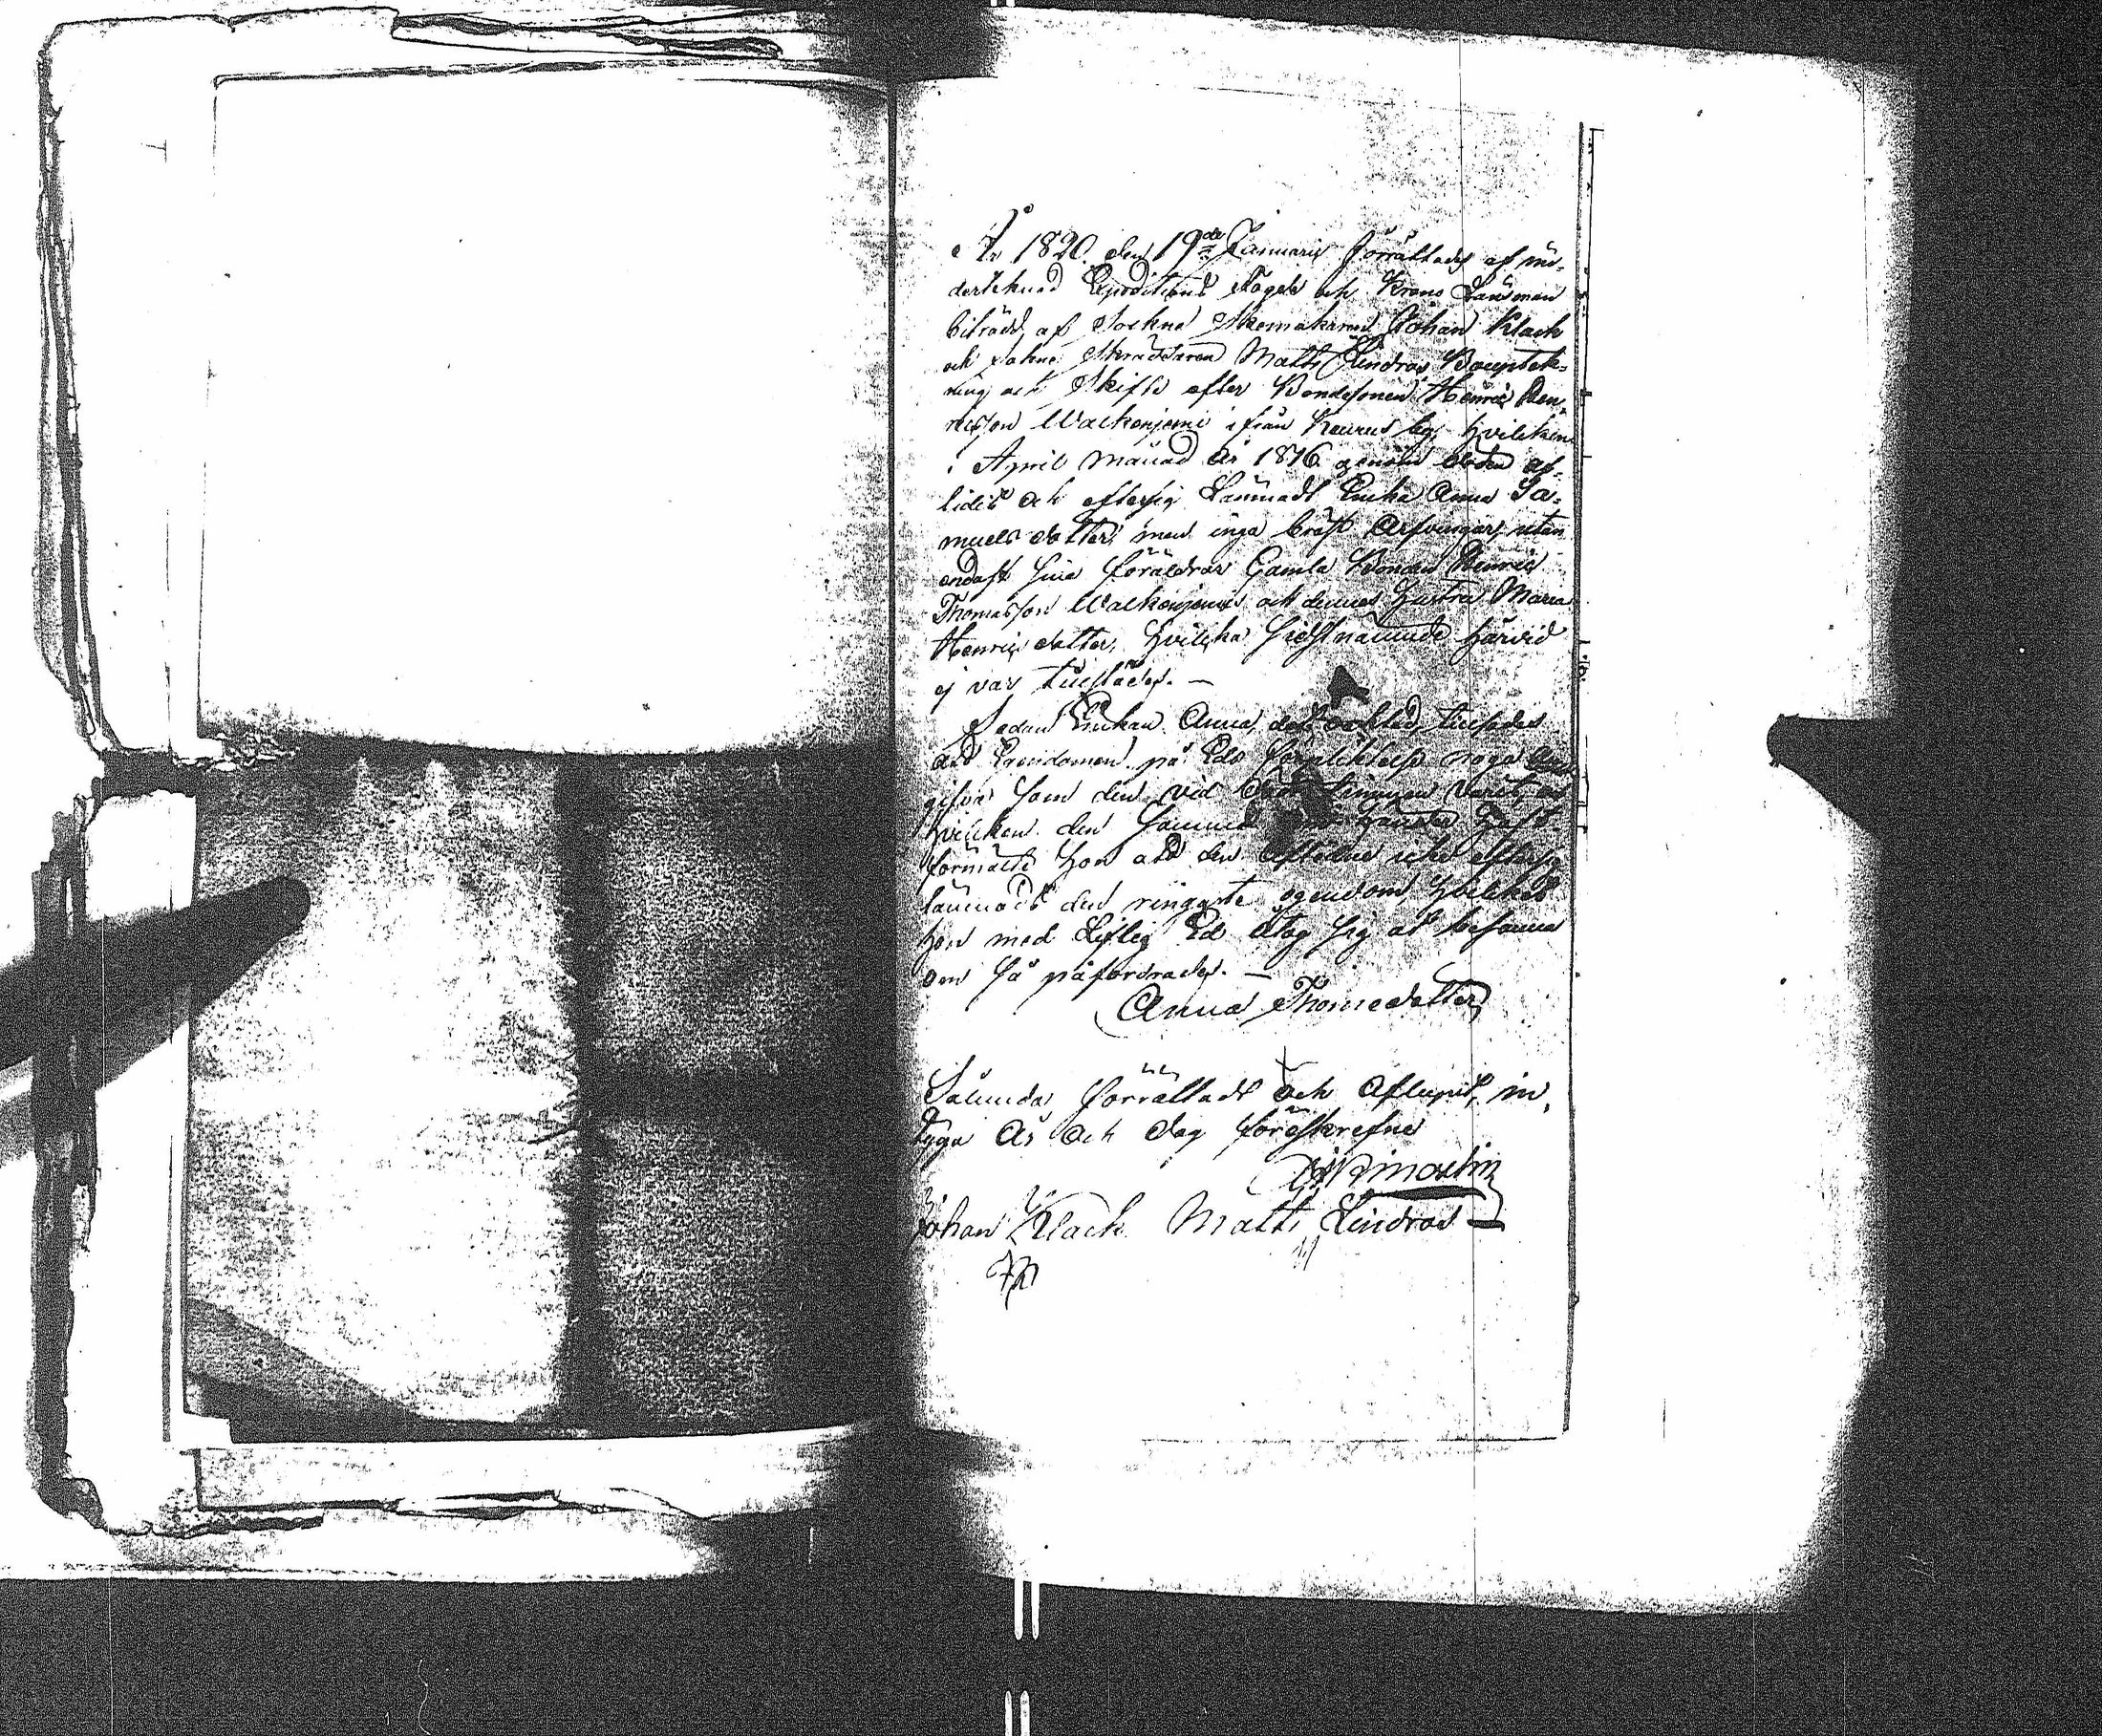 År 1820 den 19de Januarii förrättades af un-
derteknad Expeditions Fogde och Krono Länsman
biträdd af Sockne Skomakaren Johan Klack
och Sokne Skräddaren Matts Lindros Bouptek-
ning och Skifte efter Bondesonen Henric Hen-
ricsson Walkenjemi ifrån by hvilken
i April månad år 1816 genom döden af-
lidit och eftersig Lämnadt Enka Anna Sa-
muels dotter men inga bröst Arfvingar utan
endast sina föräldrar Gamla Bonden Henric
Thomasson Walkenjemi och dennes hustru Maria
Henrics dotter, hvilka sidstnämnde härvid
ej var tillstädes. —
Sedan Enkan Anna, tillsades
att Egendomen på Eds förpliktelse noga an
gifva som den vid varit,
hvilken den
förmälte hon att den Aflidne icke eftersig
lämnadt den ringaste egendom, hvilket
hon med Liflig Ed åtog sig at besanna
om så påfordrades. —
Anna Thomedotter
Sålunda förrättadt och Aflupit, in-
tyga År och dag förrskrefne
Johan Klack Matts Lindros